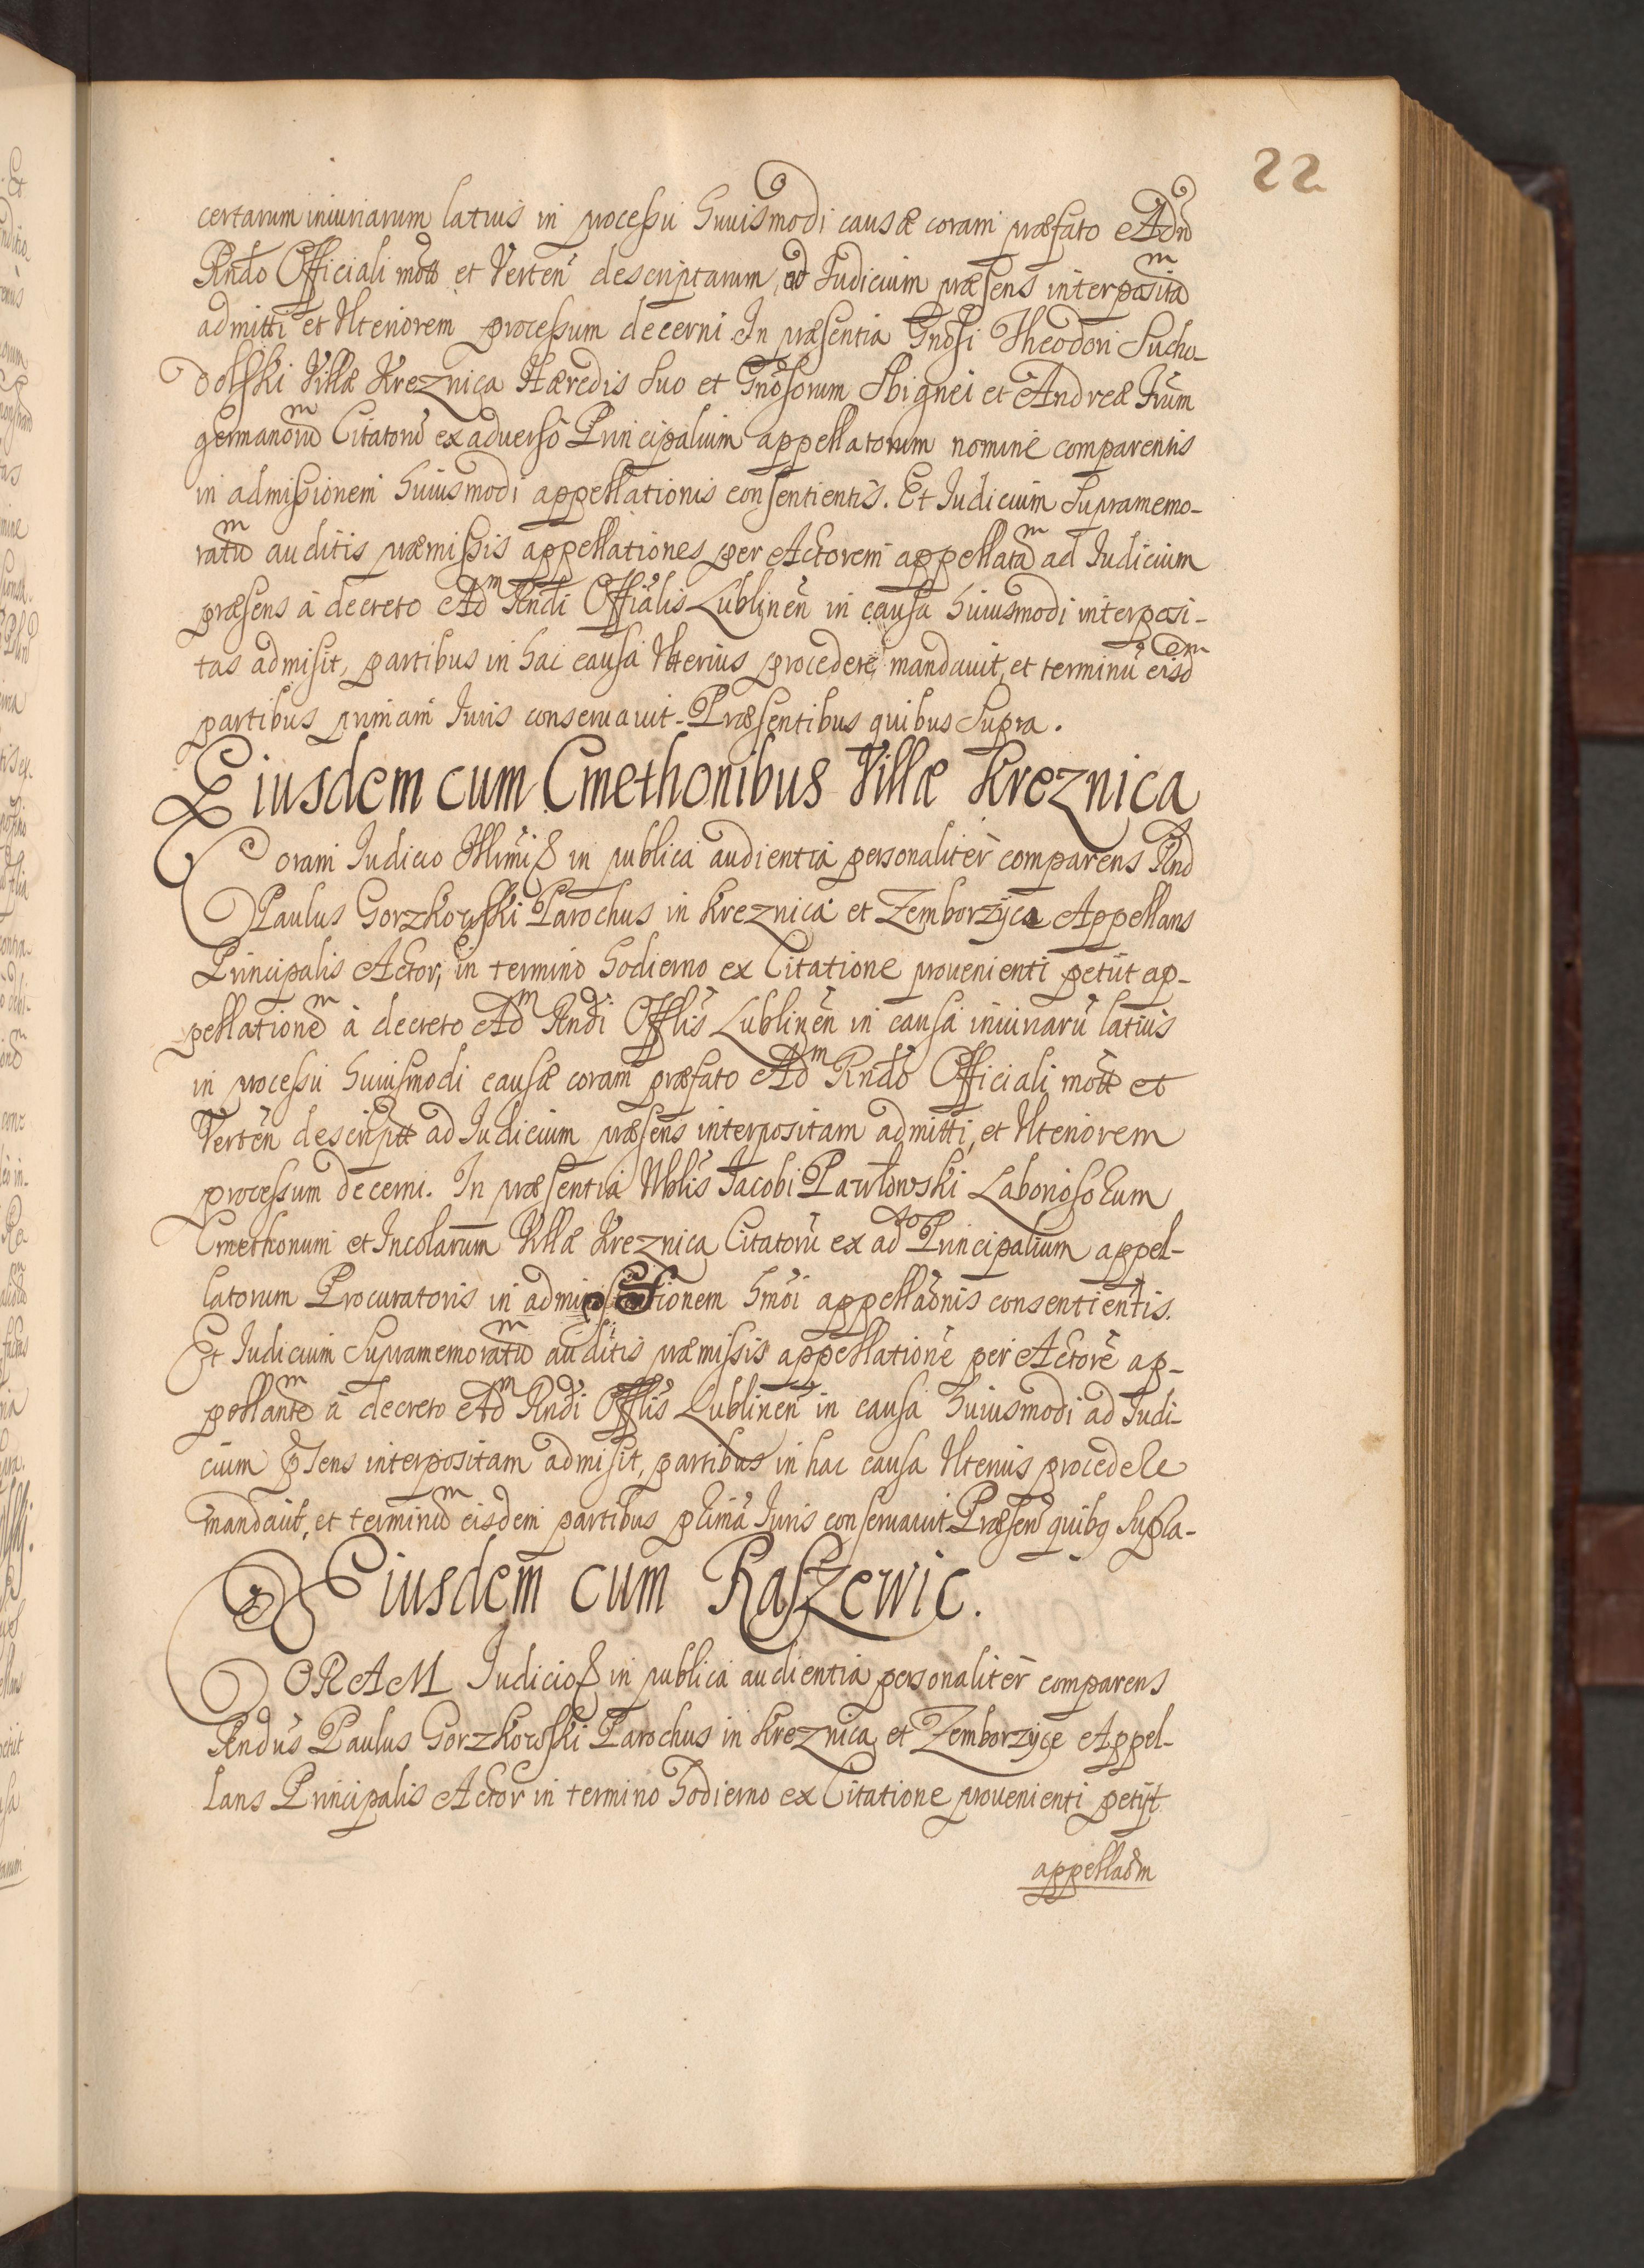 22
certarum iniuriarum latius in processu huiusmodi causæ coram præfato Adm
Rndo Officiali mott et Verten descriptarum, ad Iudicium præsens interpositam
admitti et Vlteriorem processum decerni. In præsentia Gnosi Theodori Sucho-
dolski Villæ Kreznica Hæredis suo et Gnosorum Sbignei et Andreæ Frum
germanorum Citatorū ex aduerso Principalium appellatorum nomine comparentis
in admissionem huiusmodi appellationis consentientis. Et Iudicium Supramemo-
ratum auditis præmissis appellationes per Actorem appellatam ad Iudicium
præsens à decreto Adm Rndi Offialis Lublinēn in causa huiusmodi interposi-
tas admisit, partibus in hac causa Vlterius procedere mandauit, et terminū eisdem
partibus primam Iuris conseruauit. Præsentibus quibus Supra.
Eiusdem cum Cmethonibus Villæ Kreznica
Coram Iudicio Illmi & in publica audientia personaliter comparens Rnd
Paulus Gorzkowski Parochus in Kreznica et Zemborzyca Appellans
Principalis Actor, in termino hodierno ex Citatione prouenienti petiit ap-
pellationem à decreto Adm Rndi Offlis Lublinēn in causa iniuriarū latius
in processu huiusmodi causæ coram præfato Adm Rndo Officiali mott et
Vertēn descriptt ad Iudicium præsens interpositam admitti, et Vlteriorem
processum decerni. In præsentia Nblis Iacobi Pawłowski Laboriosorum
Cmethonum et Incolarum Villæ Kreznica Citatorū ex ado Principalium appel-
latorum Procuratoris in admissionem hmōi appellaōnis consentientis.
Et Iudicium Supramemoratum auditis præmissis appellationē per Actorē ap-
pellantem à decreto Adm Rndi Offlis Lublinēn in causa huiusmodi ad Iudi-
cium psens interpositam admisit, partibus in hac causa Vlterius procedere
mandauit, et terminum eisdem partibus primā Iuris conseruauit Præsen quibq supra-
Eiusdem cum Raszewic.
CORAM Iudicio & in publica audientia personaliter comparens
Rndus Paulus Gorzkowski Parochus in Kreznica et Zemborzyce Appel-
lans Principalis Actor in termino hodierno ex Citatione prouenienti petijt
appellaōm